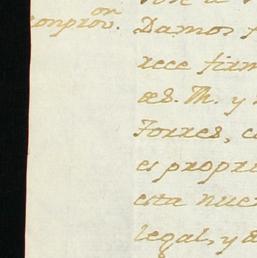 on
conprov. Damos f
rece firm
æs. Th. y
Torres, c
es propri
esta nue
legal, y